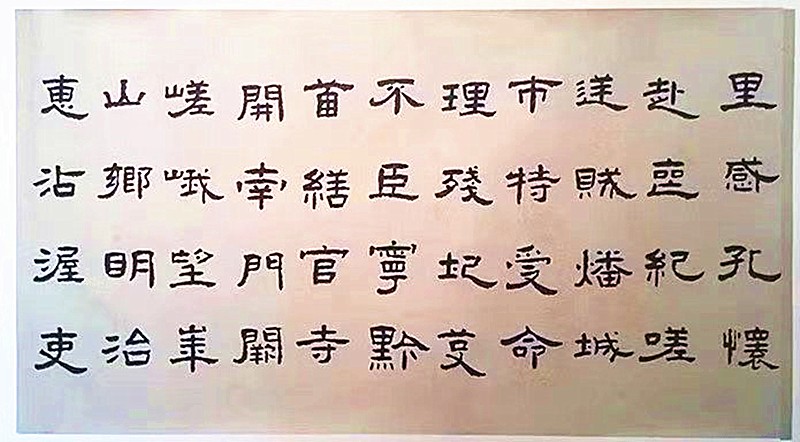 里感孔懷
赴喪紀嗟
逆賊燔城
市特受命
理殘圮芟
不臣寧黔
首繕官寺
開南門闕
嵯峨望崋
山鄉明治
惠沾渥吏